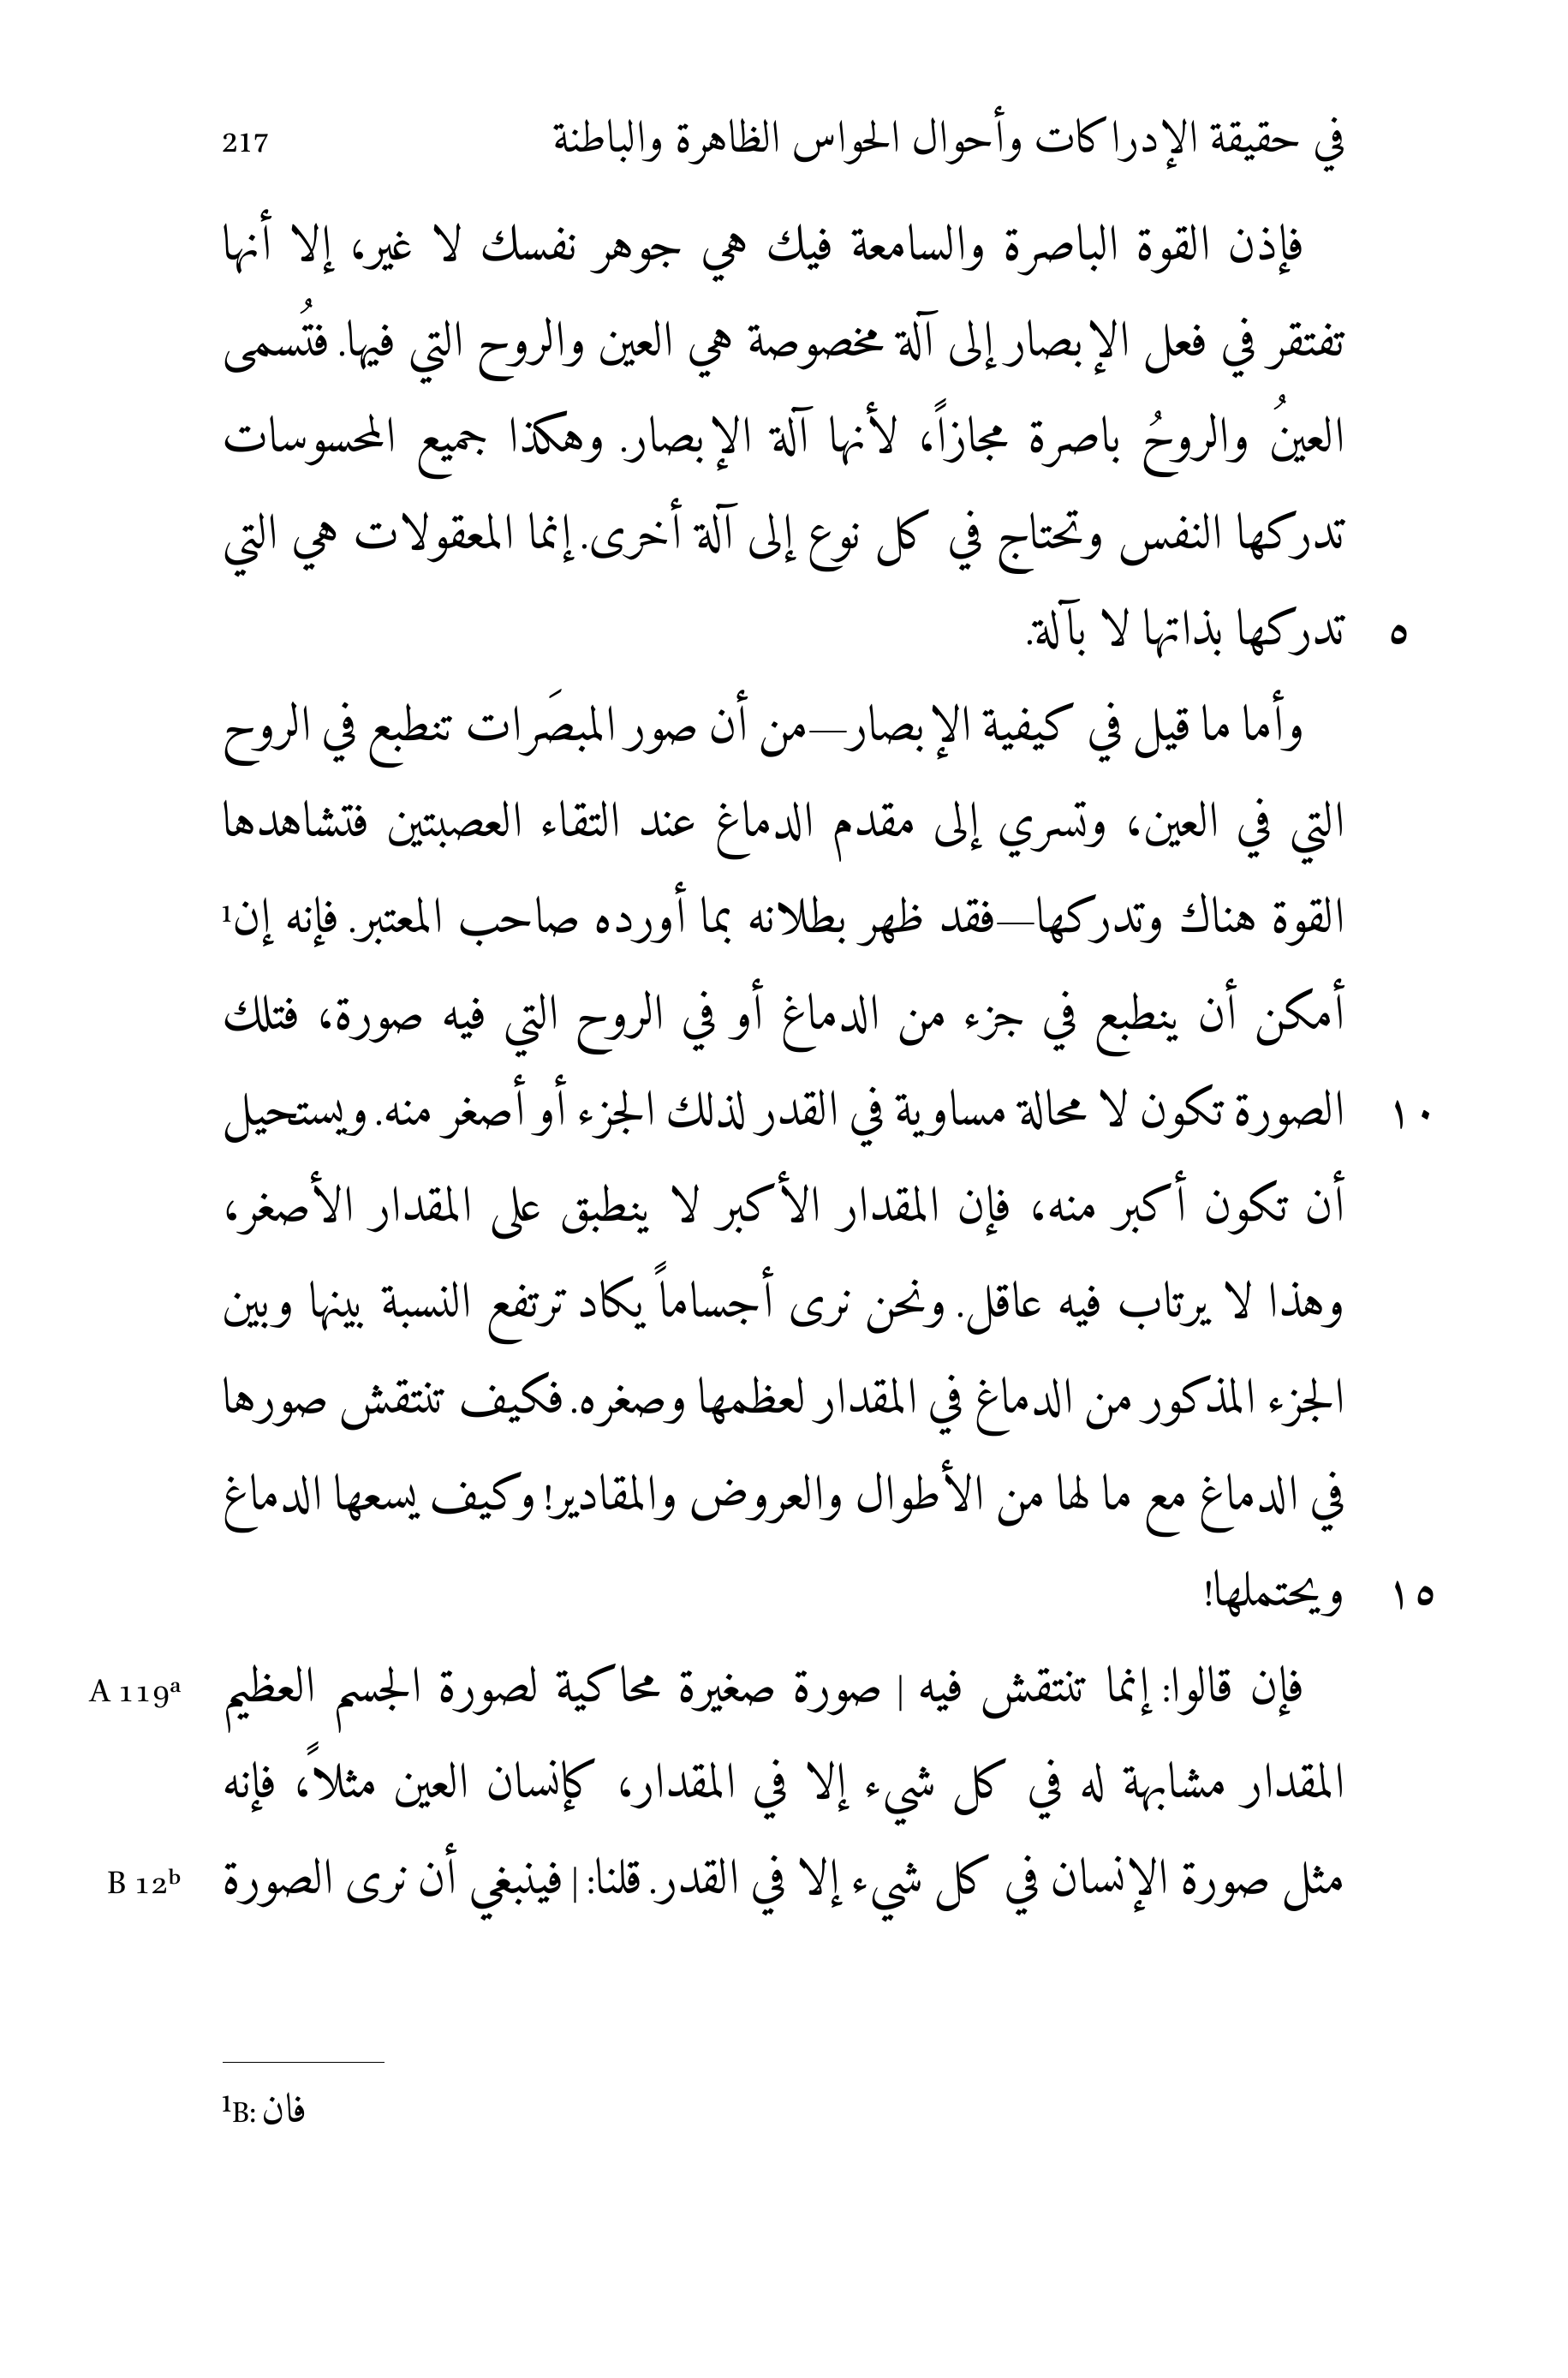 في حقيقة الإدراكات وأحوال الحواس الظاهرة والباطنة 217
فإذن القوة الباصرة والسامعة فيك هي جوهر نفسك لا غير، إلا أنها
تفتقر في فعل الإبصار إلى آلة مخصوصة هي العين والروح التي فيها. فتُسمى
العينُ والروحُ باصرة مجازاً، لأنها آلة الإبصار. وهكذا جميع المحسوسات
تدركها النفس وتحتاج في كل نوع إلى آلة أخرى. إنما المعقولات هي التي
٥ تدركها بذاتها لا بآلة.
وأما ما قيل في كيفية الإبصار—من أن صور المبصَرات تنطبع في الروح
التي في العين، وتسري إلى مقدم الدماغ عند التقاء العصبتين فتشاهدها
القوة هناك وتدركها—فقد ظهر بطلانه بما أورده صاحب المعتبر. فإنه إن¹
أمكن أن ينطبع في جزء من الدماغ أو في الروح التي فيه صورة، فتلك
١٠ الصورة تكون لا محالة مساوية في القدر لذلك الجزء أو أصغر منه. ويستحيل
أن تكون أكبر منه، فإن المقدار الأكبر لا ينطبق على المقدار الأصغر،
وهذا لا يرتاب فيه عاقل. ونحن نرى أجساماً يكاد ترتفع النسبة بينها وبين
الجزء المذكور من الدماغ في المقدار لعظمها وصغره. فكيف تنتقش صورها
في الدماغ مع ما لها من الأطوال والعروض والمقادير! وكيف يسعها الدماغ
١٥ ويحتملها!
فإن قالوا: إنما تنتقش فيه | صورة صغيرة محاكية لصورة الجسم العظيم A 119ᵃ
المقدار مشابهة له في كل شيء إلا في المقدار، كإنسان العين مثلاً، فإنه
مثل صورة الإنسان في كل شيء إلا في القدر. قلنا: | فينبغي أن نرى الصورة B 12ᵇ
¹B: فان